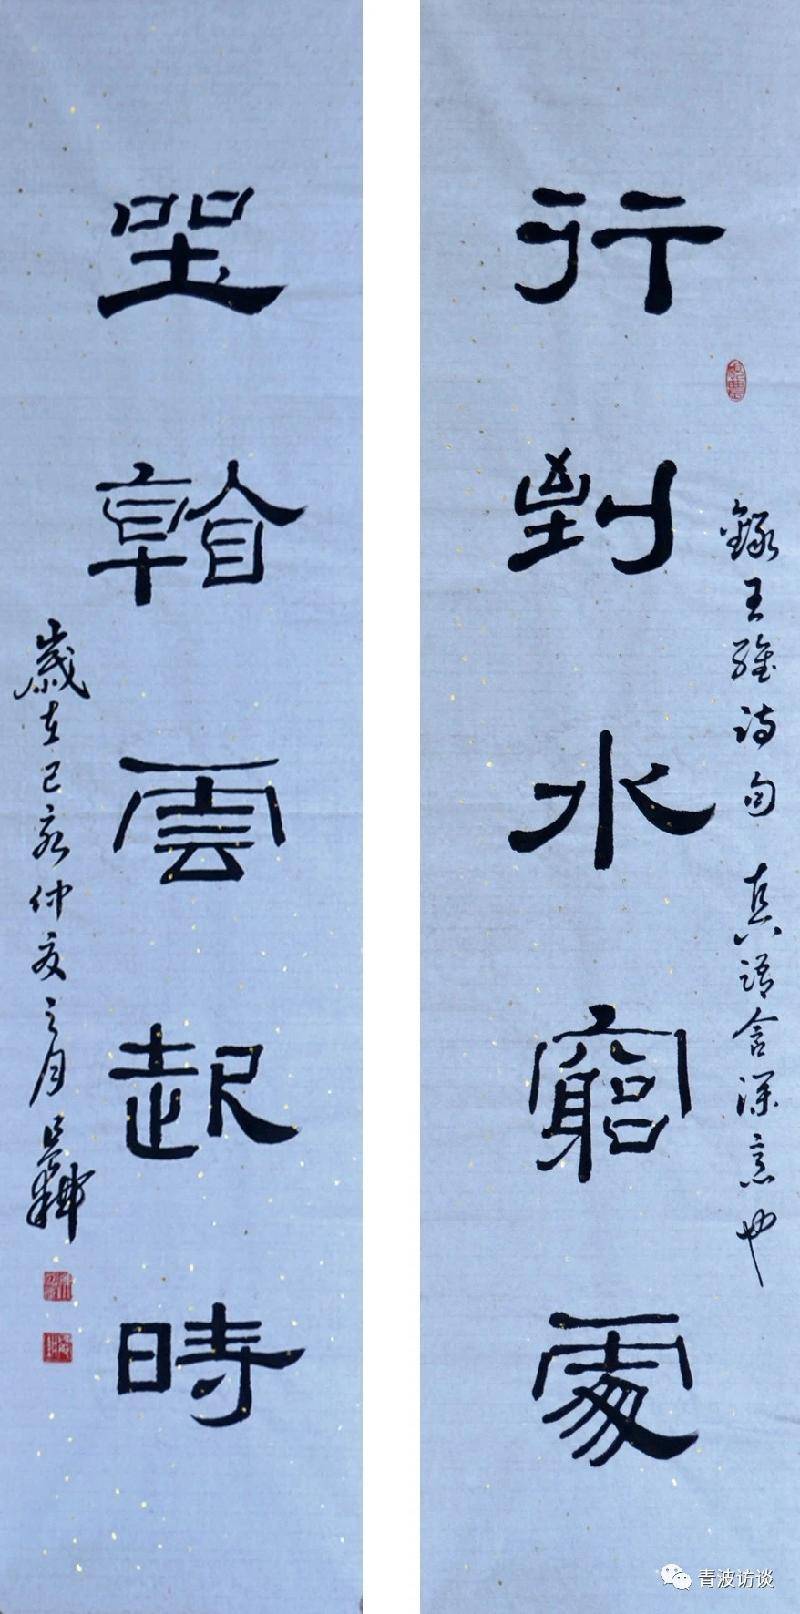 行到水窮處
錄王維詩句 真語含深意也
坐看雲起時
歲在己亥仲夏之月
青波访谈